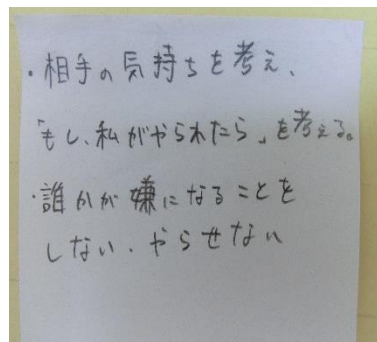 ・相手の気持ちを考え、
「もし、私がやられたら」を考える。
・誰かが嫌になることを
しない・やらせない